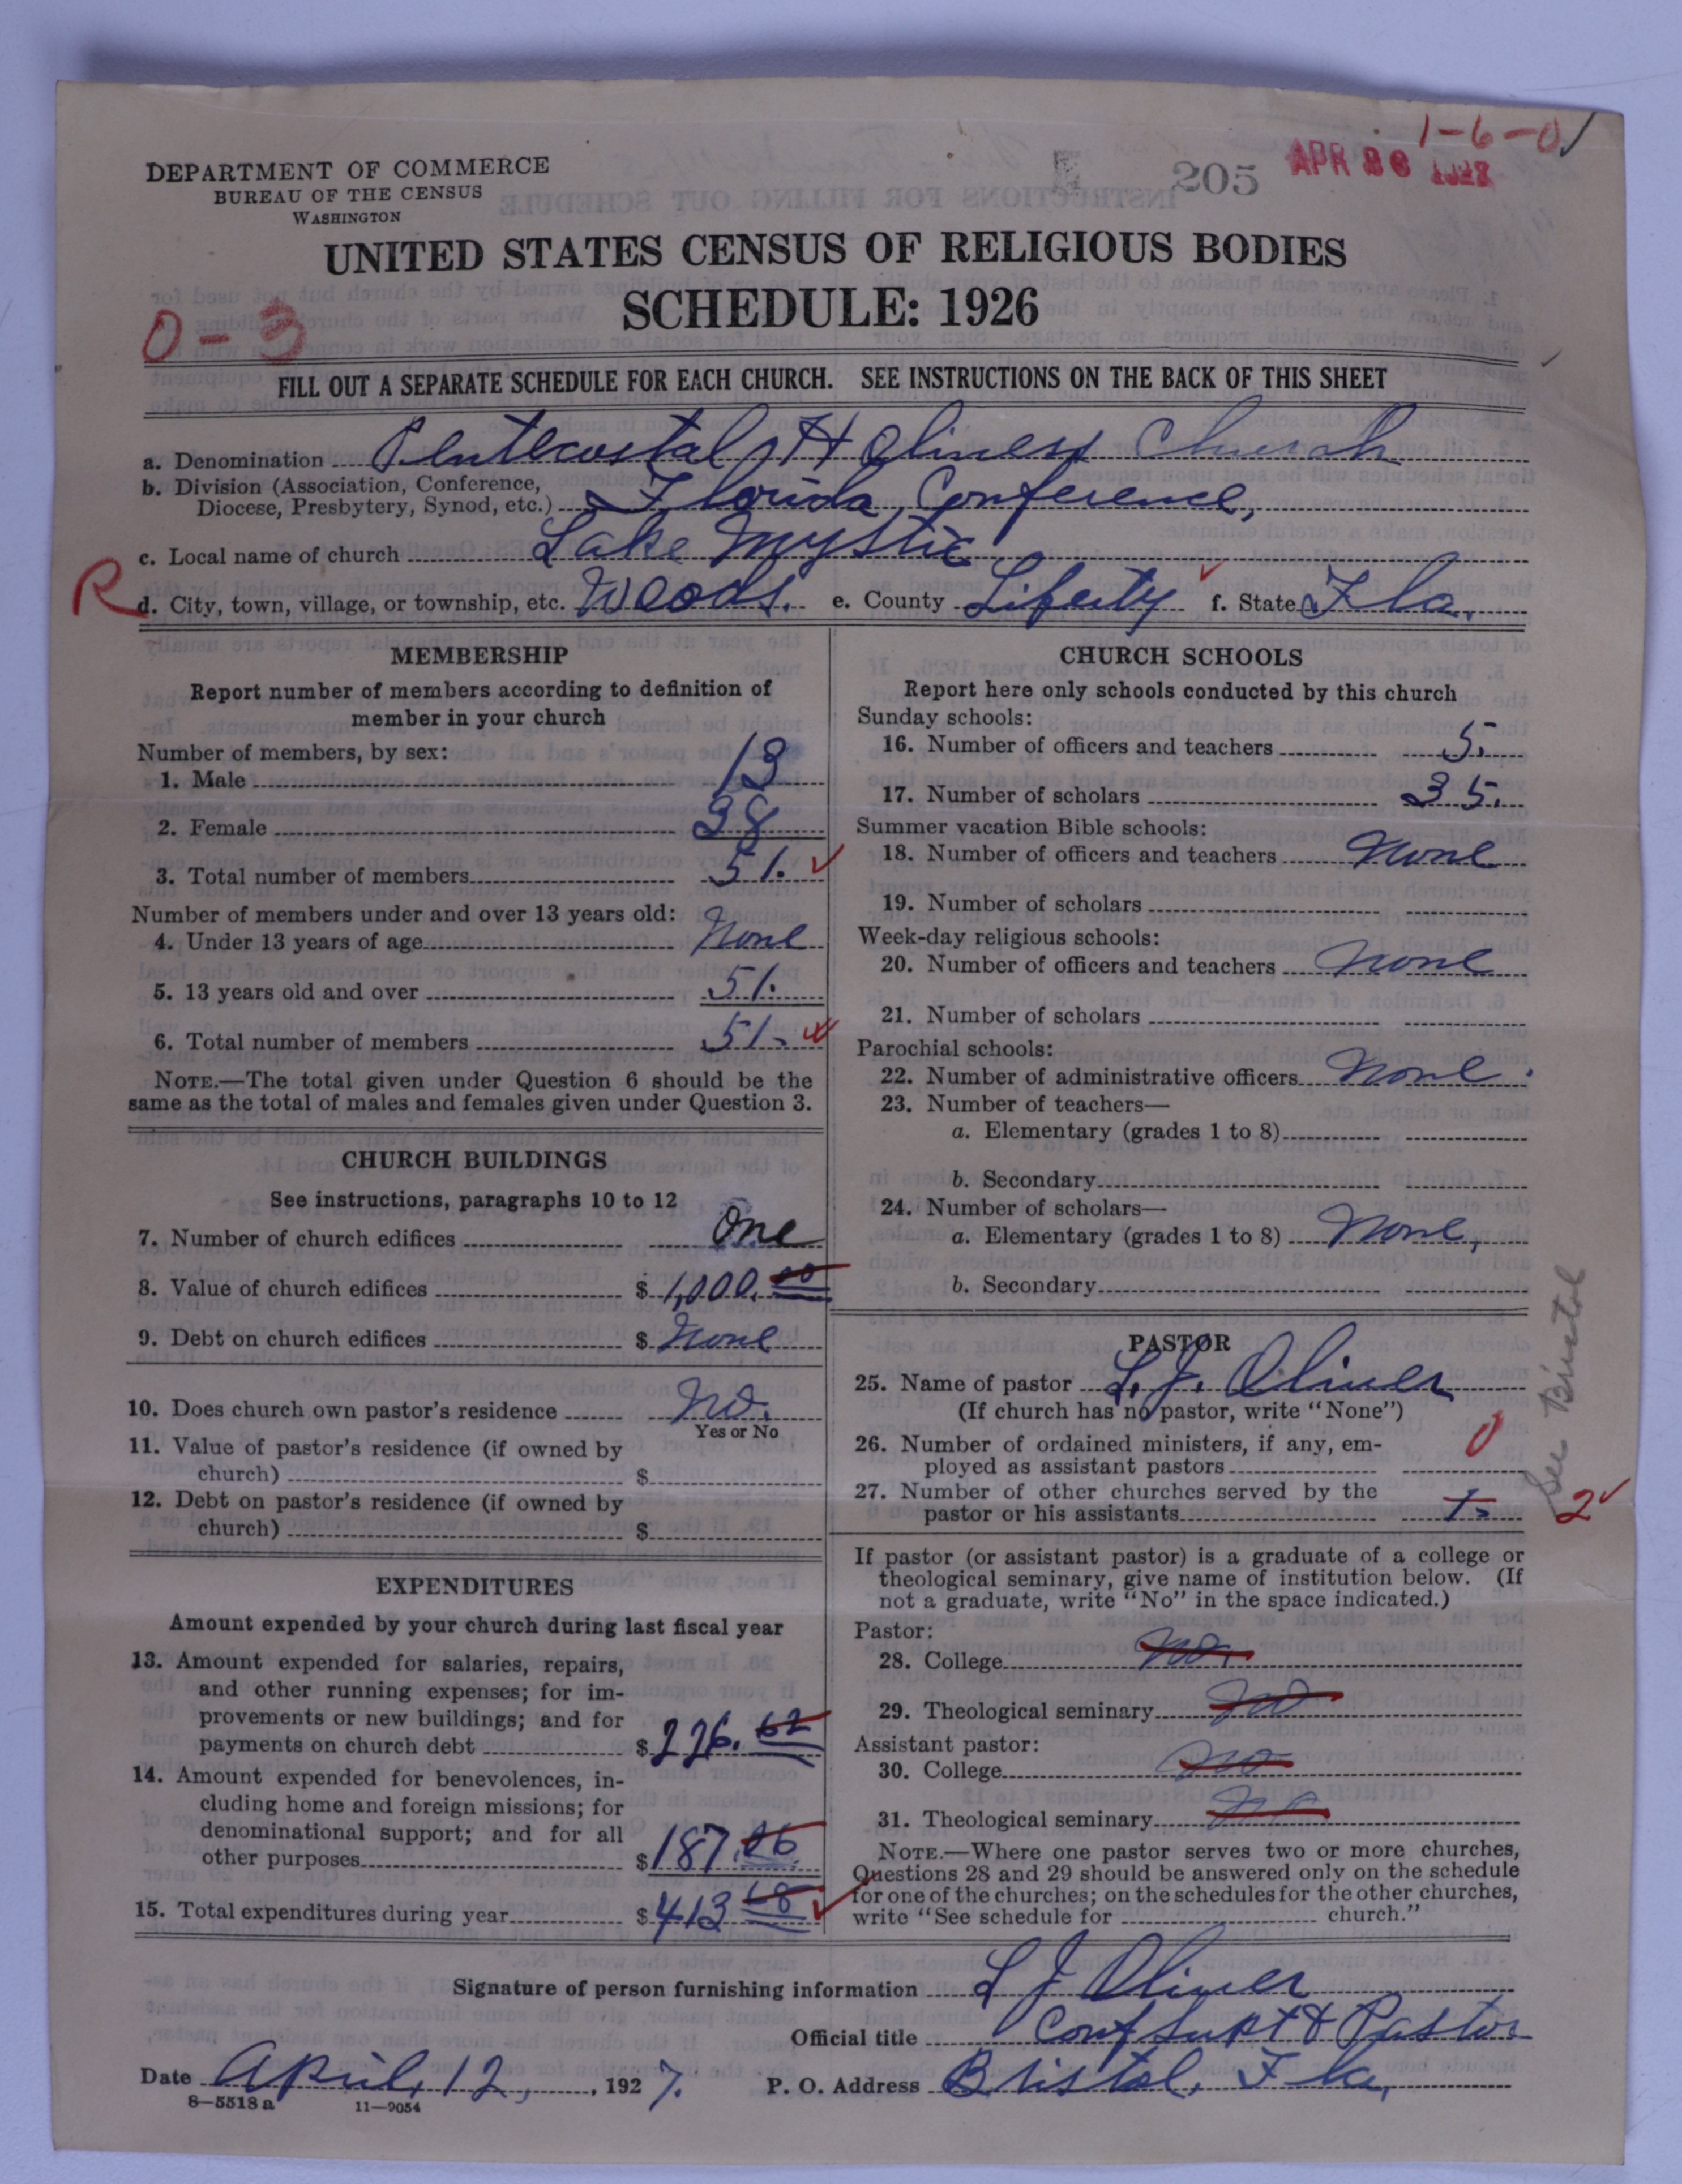 1-6-0
DEPARTMENT OF COMMERCE
BUREAU OF THE CENSUS
WASHINGTON
205
APR 1927
UNITED STATES CENSUS OF RELIGIOUS BODIES
SCHEDULE: 1926
0-3
FILL OUT A SEPARATE SCHEDULE FOR EACH CHURCH. SEE INSTRUCTIONS ON THE BACK OF THIS SHEET
a. Denomination Pentecostal Holiness Church
b. Division (Association, Conference,
Diocese, Presbytery, Synod, etc.) Florida Conference,
c. Local name of church Lake Mystic
R d. City, town, village, or township, etc. Woods. e. County Liberty f. State Fla.
MEMBERSHIP
Report number of members according to definition of
member in your church
Number of members, by sex:
1. Male 13
2. Female 38
3. Total number of members 51.
Number of members under and over 13 years old:
4. Under 13 years of age None
5. 13 years old and over 51.
6. Total number of members 51.
NOTE.—The total given under Question 6 should be the
same as the total of males and females given under Question 3.
CHURCH BUILDINGS
See instructions, paragraphs 10 to 12
7. Number of church edifices One
8. Value of church edifices $1,000.00
9. Debt on church edifices $ None
10. Does church own pastor's residence No.
Yes or No
11. Value of pastor's residence (if owned by
church) $
12. Debt on pastor's residence (if owned by
church) $
EXPENDITURES
Amount expended by your church during last fiscal year
13. Amount expended for salaries, repairs,
and other running expenses; for im-
provements or new buildings; and for
payments on church debt $226.62
14. Amount expended for benevolences, in-
cluding home and foreign missions; for
denominational support; and for all
other purposes $187.06
15. Total expenditures during year $413 68
CHURCH SCHOOLS
Report here only schools conducted by this church
Sunday schools:
16. Number of officers and teachers 5.
17. Number of scholars 35.
Summer vacation Bible schools:
18. Number of officers and teachers None
19. Number of scholars
Week-day religious schools:
20. Number of officers and teachers None
21. Number of scholars
Parochial schools:
22. Number of administrative officers None.
23. Number of teachers—
a. Elementary (grades 1 to 8)
b. Secondary
24. Number of scholars—
a. Elementary (grades 1 to 8) None,
b. Secondary
PASTOR
25. Name of pastor L. J. Oliver
(If church has no pastor, write "None")
26. Number of ordained ministers, if any, em-
ployed as assistant pastors 0
27. Number of other churches served by the
pastor or his assistants 2
See Bristol
If pastor (or assistant pastor) is a graduate of a college or
theological seminary, give name of institution below. (If
not a graduate, write "No" in the space indicated.)
Pastor:
28. College No.
29. Theological seminary No
Assistant pastor:
30. College No
31. Theological seminary No
NOTE.—Where one pastor serves two or more churches,
Questions 28 and 29 should be answered only on the schedule
for one of the churches; on the schedules for the other churches,
write "See schedule for church."
Signature of person furnishing information L J Oliver
Official title Conf Supt & Pastor
Date April, 12, 1927. P. O. Address Bristol. Fla,
8-5518 a 11-9054